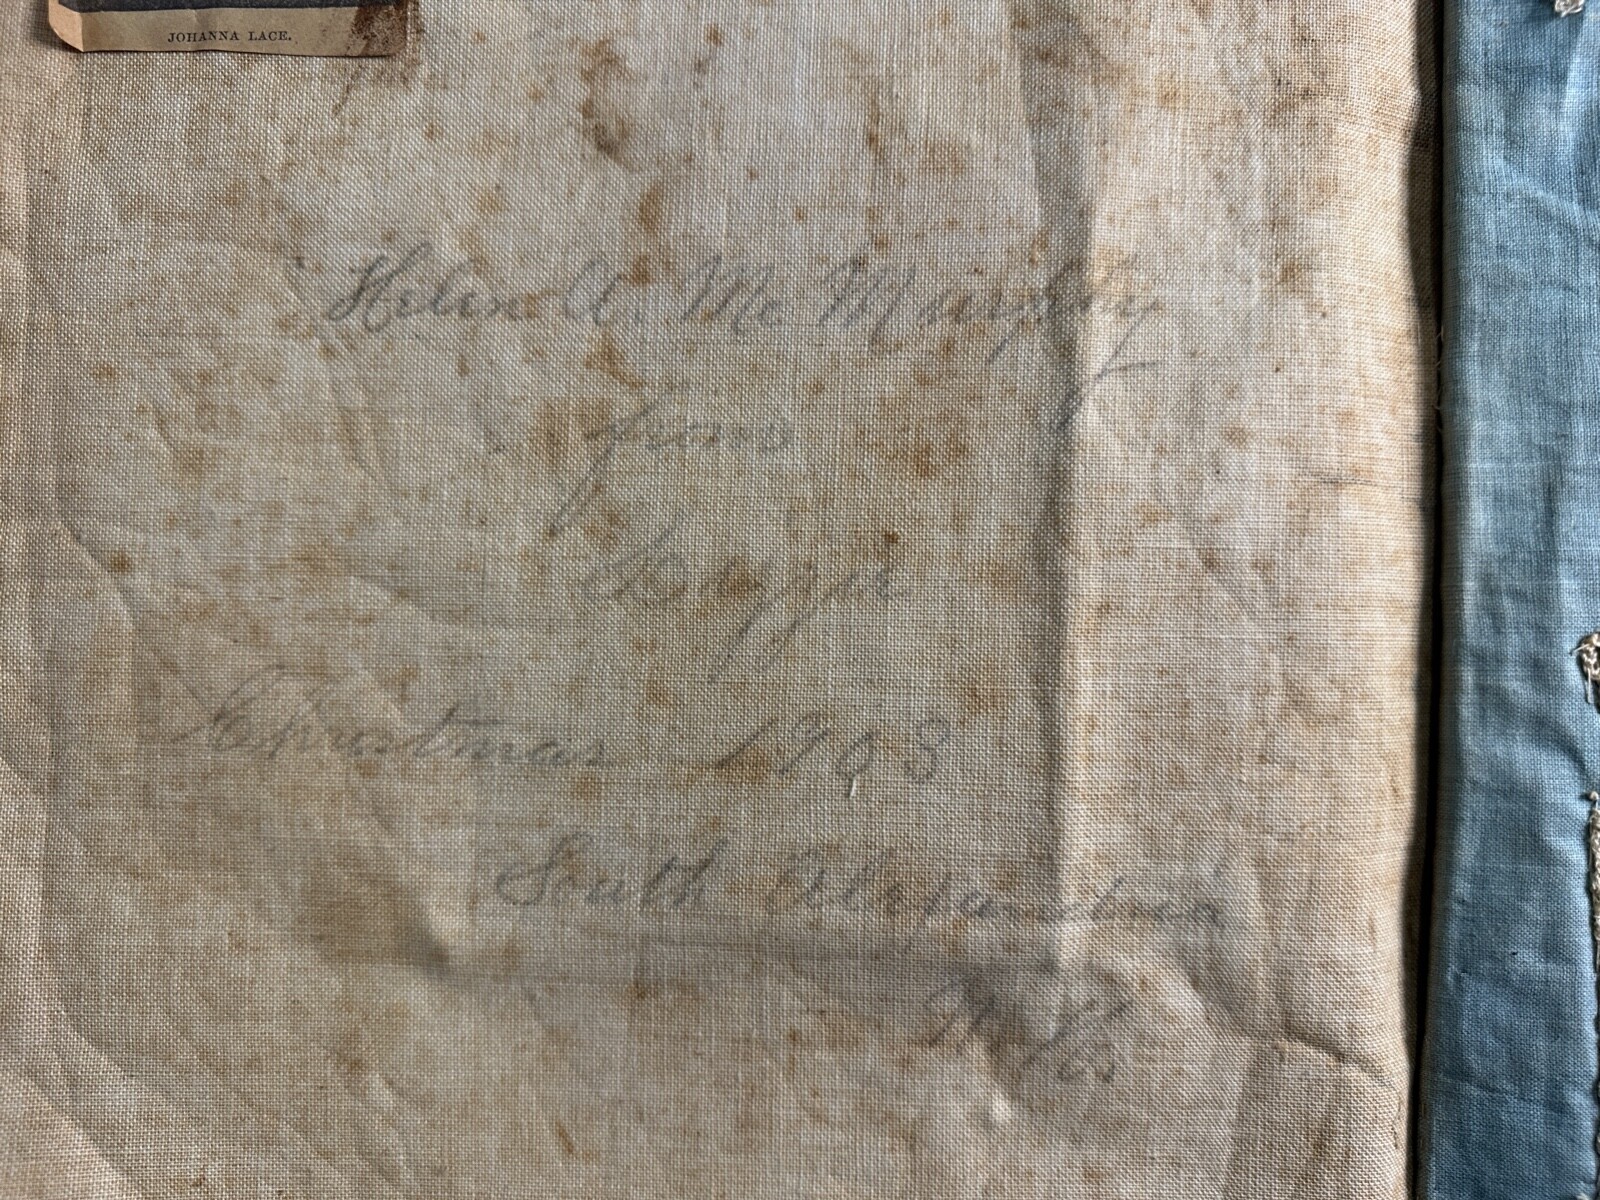 JOHANNA LACE.
Helen A. Mc Murphy
from
Christmas 1908
South Alexandria
N. H.